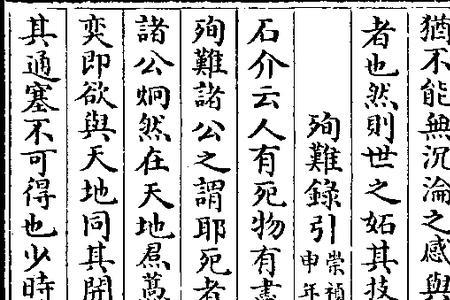 猶不能無沉淪之感與
者也然則世之妬其技
殉難錄引崇禎申年
石介云人有死物有盡
殉難諸公之謂耶死者
諸公炯然在天地焄蒿
奕即欲與天地同其開
其通塞不可得也少時